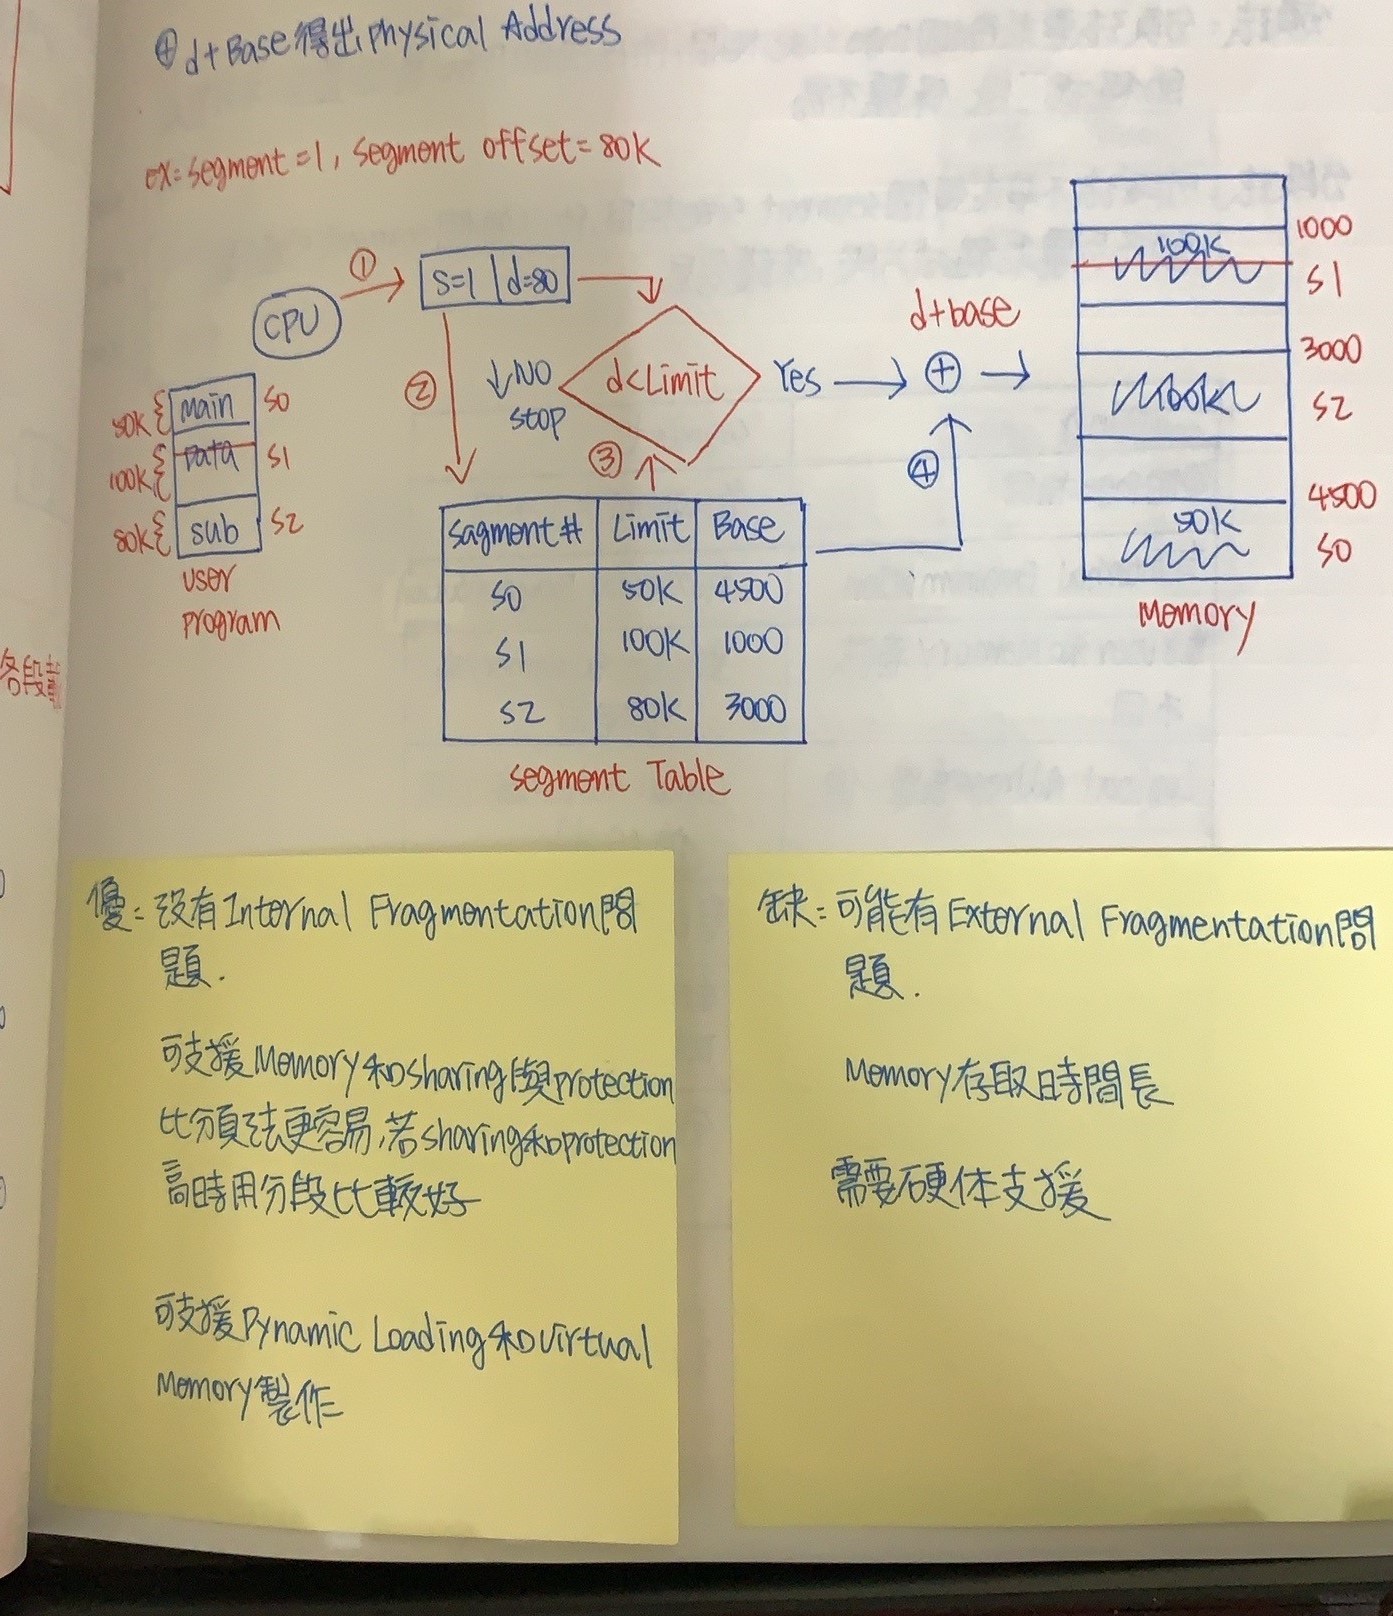 ④ d+Base得出physical Address
ex: segment=1, segment offset=80K
①
S=1 | d=80
CPU
②
↓NO
stop
d<Limit
Yes
d+base
+
③
④
main
Data
sub
50K
100K
80K
S0
S1
S2
user
program
Sagment# Limit Base
S0 50K 4500
S1 100K 1000
S2 80K 3000
segment Table
100K
50K
1000
S1
3000
S2
4500
S0
Memory
各段載
優:沒有Internal Fragmentation問
題.
可支援Memory和sharing與protection
比分頁法更容易,若sharing和protection
高時用分段比較好
可支援Dynamic Loading和virtual
Memory製作
缺:可能有External Fragmentation問
題.
Memory存取時間長
需要硬体支援